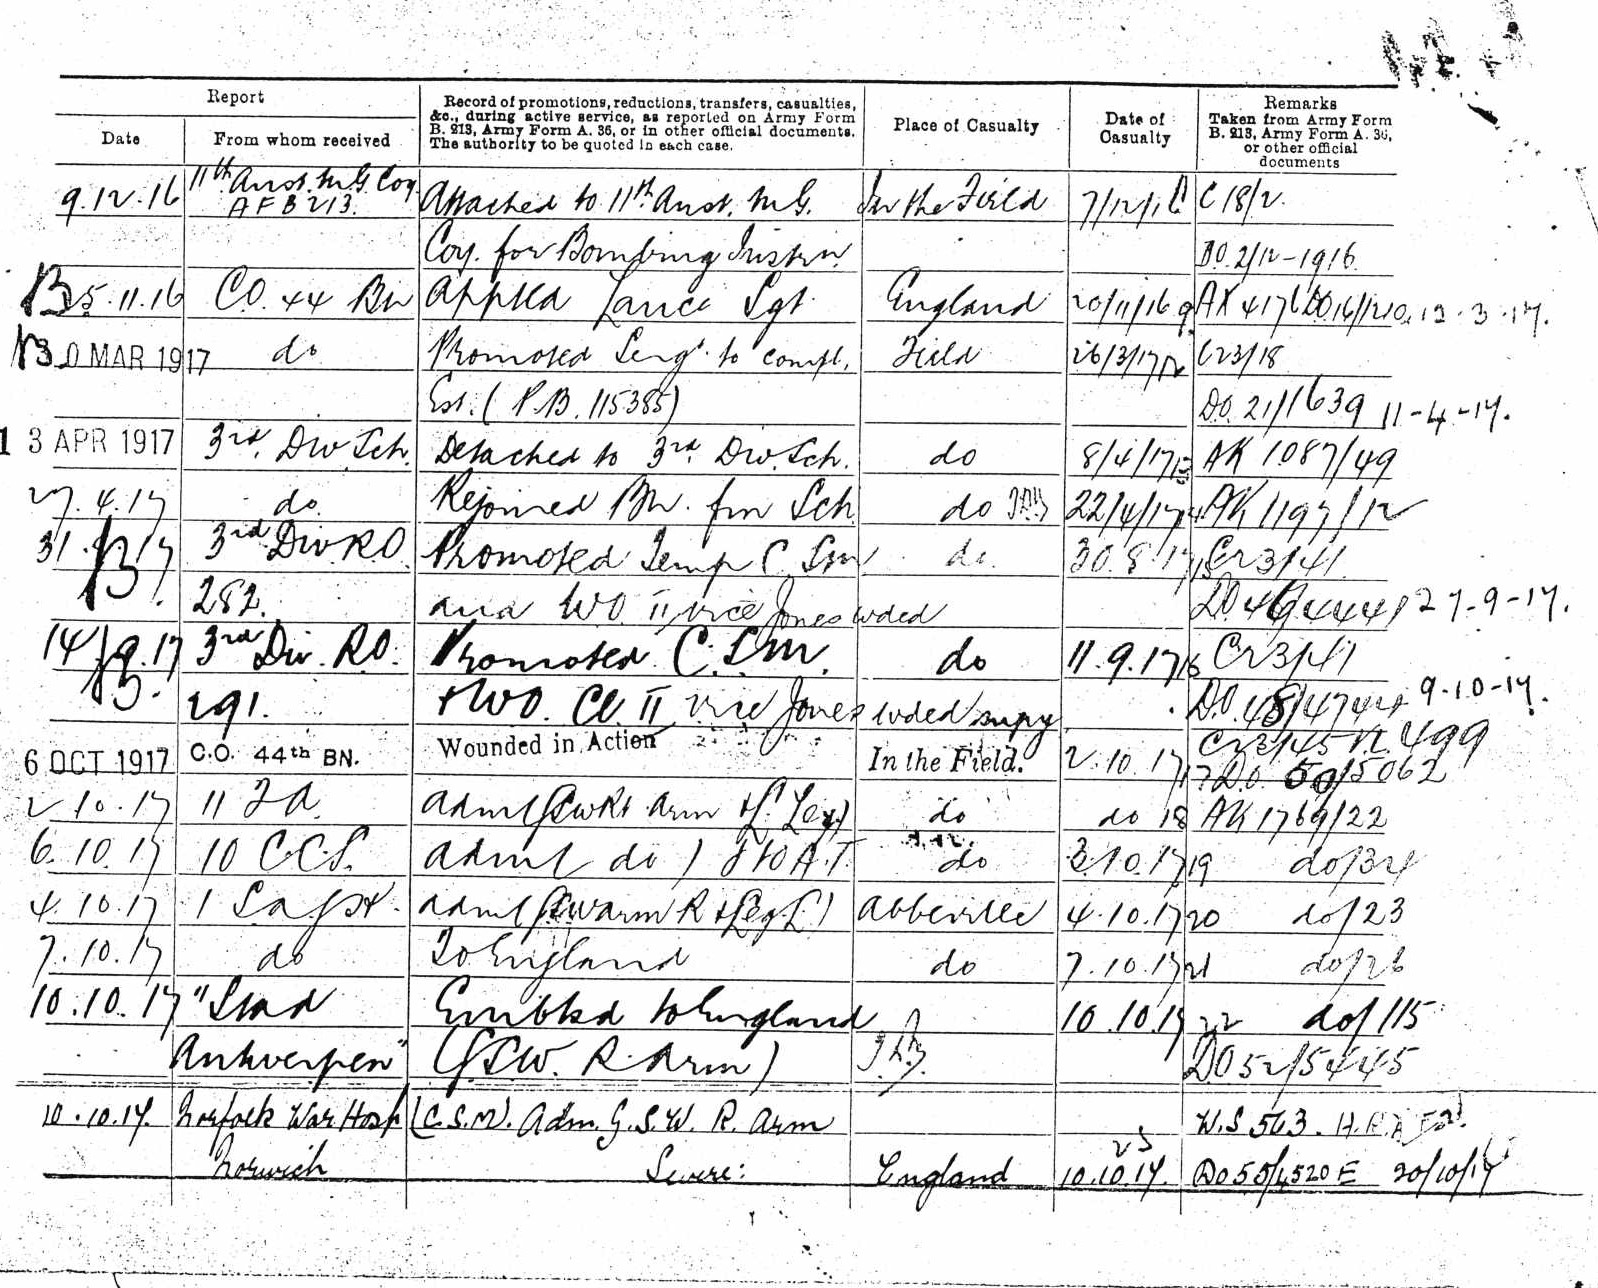 Report
Record of promotions, reductions, transfers, casualties, &c., during active service, as reported on Army Form B. 213, Army Form A. 36, or in other official documents. The authority to be quoted in each case.
Place of Casualty
Date of Casualty
Remarks
Taken from Army Form B. 213, Army Form A. 36, or other official documents
Date
From whom received
9.12.16 11th Aust. M.G. Coy A F B 213. Attached to 11th Aust. M.G. In the Field 7/12/16 C 18/2.
Coy. for Bombing Instrn. DO. 2/12-1916
5.11.16 CO. 44 Bn Appted Lance Sgt England 20/11/16 9 AK 4176 12.3.17.
0 MAR 1917 do Promoted Serg. to compl. Field 26/3/17 Cr3/18
Est. (P.B. 115385) DO. 21/1639 11-4-17.
13 APR 1917 3rd. Div Sch. Detached to 3rd. Div. Sch. do 8/4/17 AK 1087/49
27.4.17 do. Rejoined Bn. fm Sch do 22/4/17 AK 1197/12
31. 17 3rd Div R.O. Promoted Temp C Sm do. 30.8.17 Cr3/41
282. and WO II vice Jones wded 27-9-17.
14/9.17 3rd Div. RO. Promoted C.S.M. do 11.9.17 Cr3/41
291. + WO. Cl II vice Jones wded supy D.O. 48/4744 9-10-17.
6 OCT 1917 C.O. 44th BN. Wounded in Action In the Field. 2.10.17 Cr3/45 499
17 D.O. 50/5062
2.10.17 11 F.A. Adm (GSW Rt Arm & L. Leg) do do 18 AK 1769/22
6.10.17 10 C.C.S. Adm ( do ) do 3.10.17 19 do/34
4.10.17 1 Adm (GSW Arm R & Leg L) Abbeville 4.10.17 20 do/23
7.10.17 do To England do 7.10.17 21 do/26
10.10.17 "Stad Embkd to England 10.10.17 22 do/115
Antwerpen" (GSW. R. Arm) DO 52/5445
10.10.17. Norfolk War Hosp (C.S.M). Adm. G.S.W. R. Arm W.S 563.
23
Norwich Severe: England 10.10.17. DO 55/4520 E 20/10/17